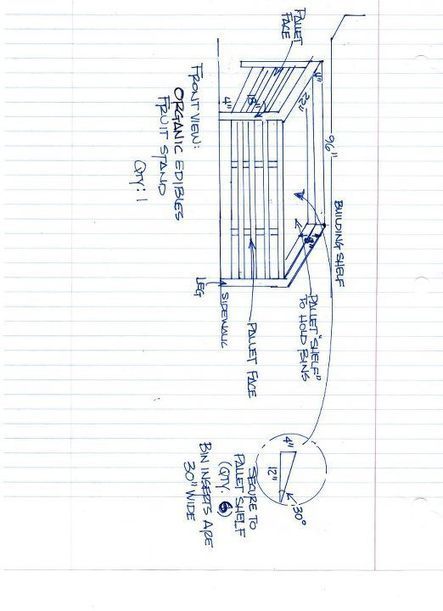 BUILDING SHELF
96"
4"
22"
PALLET
FACE
PALLET "SHELF"
TO HOLD BINS
4"
PALLET FACE
SIDEWALK
LEG
FRONT VIEW:
ORGANIC EDIBLES
FRUIT STAND
QTY: 1
30°
4"
12"
SECURE TO
PALLET SHELF
(QTY: 6)
BIN INSERTS ARE
30" WIDE